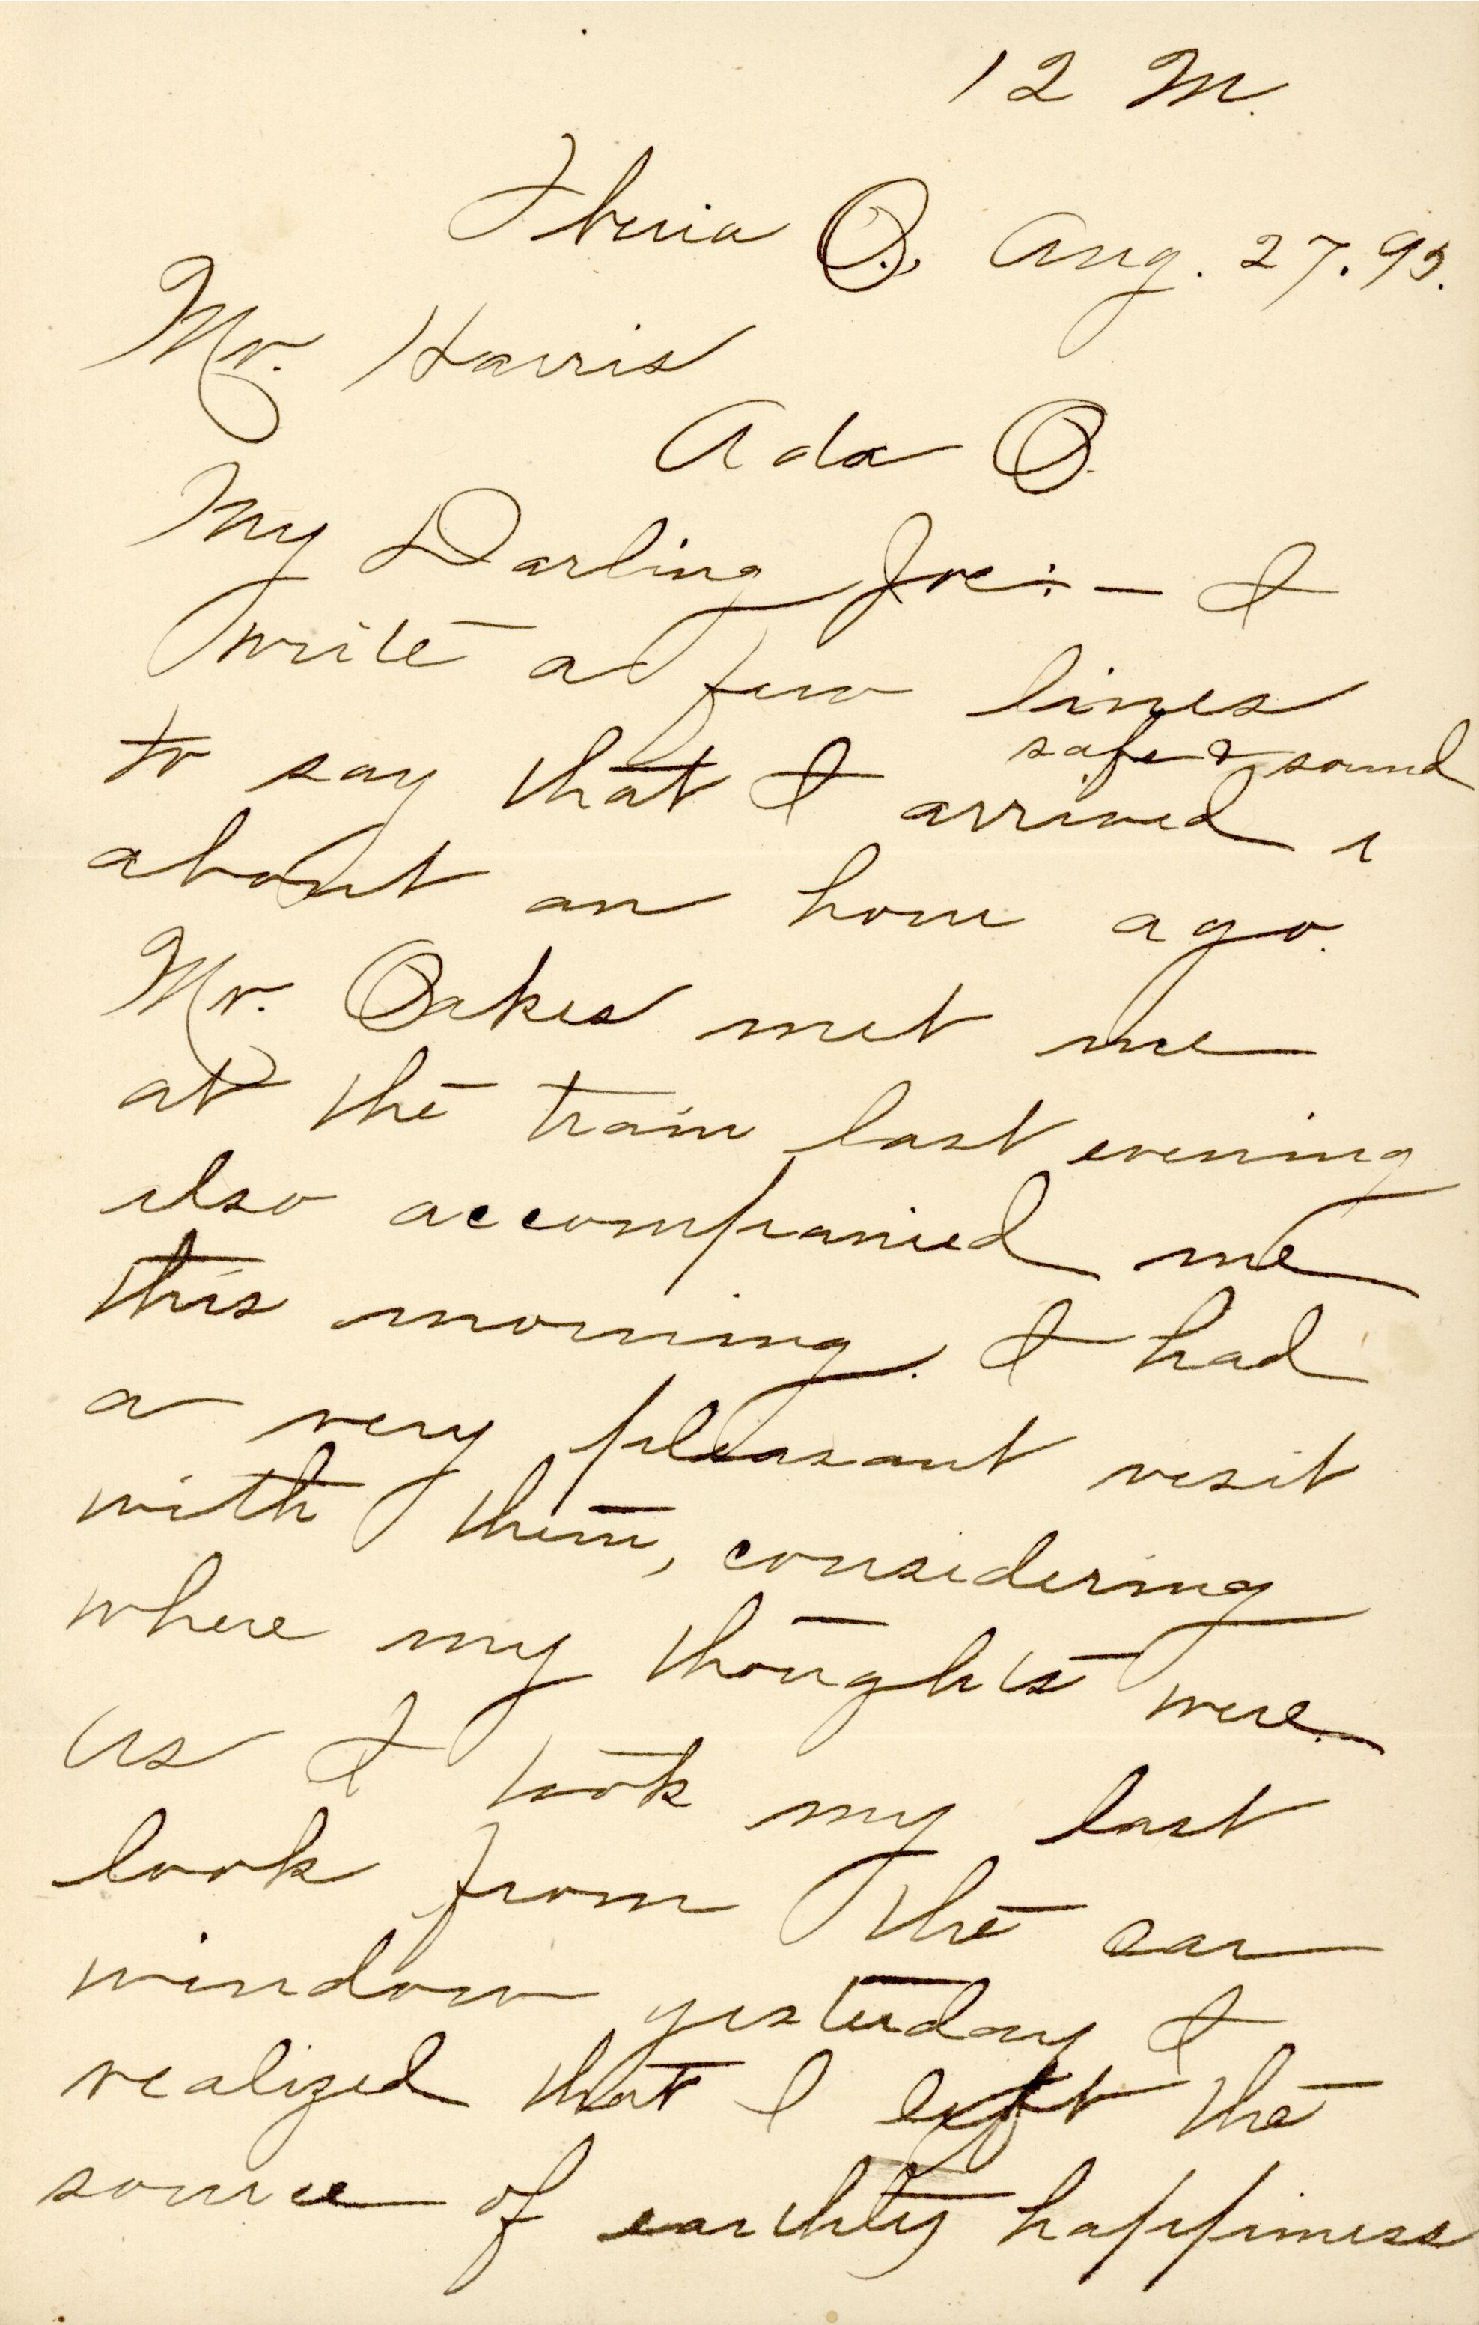 12 M.
Iberia O., Aug. 27. 95.
Mr. Harris
Ada O.
My Darling Joe:— I
write a few lines
safe & sound
to say that I arrived,
about an hour ago.
Mr. Oakes met me
at the train last evening
also accompanied me
this morning. I had
a very pleasant visit
with them, considering
where my thoughts were.
As I took my last
look from the car
window yesterday I
realized that I left the
source of earthly happiness